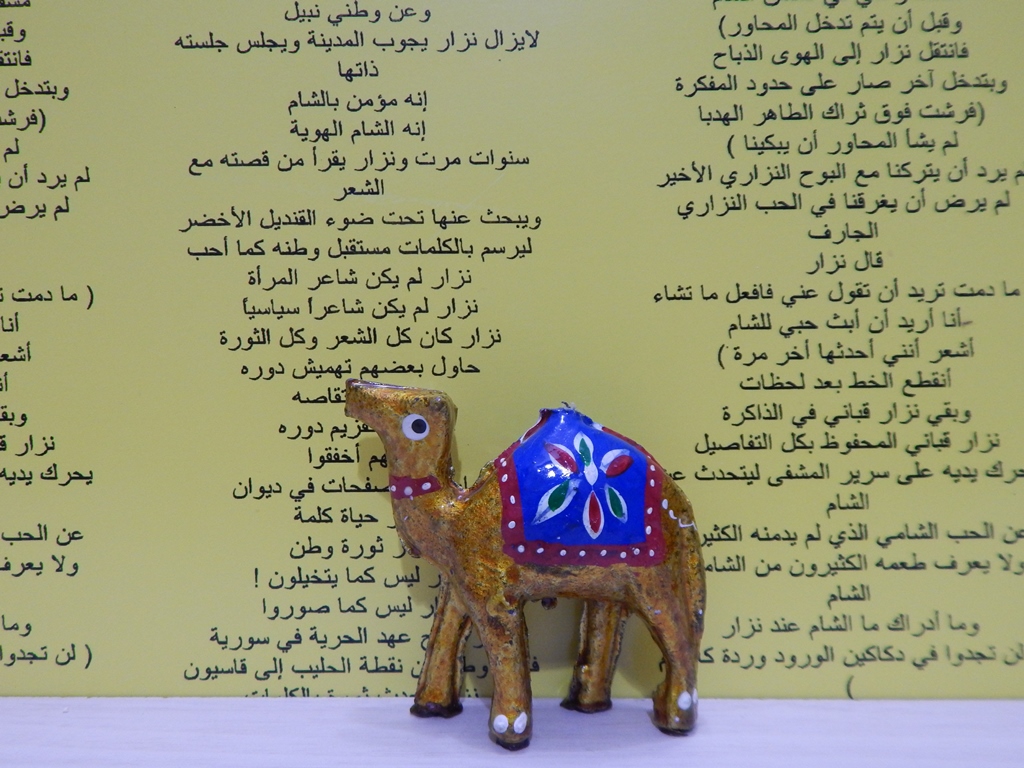 وقبل أن يتم تدخل المحاور)
فانتقل نزار إلى الهوى الذباح
وبتدخل آخر صار على حدود المفكرة
(فرشت فوق ثراك الطاهر الهدبا
لم يشأ المحاور أن يبكينا )
لم يرد أن يتركنا مع البوح النزاري الأخير
لم يرض أن يغرقنا في الحب النزاري
الجارف
قال نزار
ما دمت تريد أن تقول عني فافعل ما تشاء
أنا أريد أن أبث حبي للشام
أشعر أنني أحدثها أخر مرة )
أنقطع الخط بعد لحظات
وبقي نزار قباني في الذاكرة
نزار قباني المحفوظ بكل التفاصيل
يحرك يديه على سرير المشفى ليتحدث عن
الشام
عن الحب الشامي الذي لم يدمنه الكثير
ولا يعرف طعمه الكثيرون من الشام
الشام
وما أدراك ما الشام عند نزار
لن تجدوا في دكاكين الورود وردة
(
وعن وطني نبيل
لايزال نزار يجوب المدينة ويجلس جلسته
ذاتها
إنه مؤمن بالشام
إنه الشام الهوية
سنوات مرت ونزار يقرأ من قصته مع
الشعر
ويبحث عنها تحت ضوء القنديل الأخضر
ليرسم بالكلمات مستقبل وطنه كما أحب
نزار لم يكن شاعر المرأة
نزار لم يكن شاعراً سياسياً
نزار كان كل الشعر وكل الثورة
حاول بعضهم تهميش دوره
دوره
أخفقوا
صفحات في ديوان
حياة كلمة
ثورة وطن
ليس كما يتخيلون !
ليس كما صوروا
عهد الحرية في سورية
نقطة الحليب إلى قاسيون
وقب
فانتق
وبتدخل
(فرش
لم
لم يرد أن
لم يرض
( ما دمت
أنا
أشع
وبق
نزار ق
يحرك يديه
عن الحب
ولا يعرف
وما
( لن تجدوا